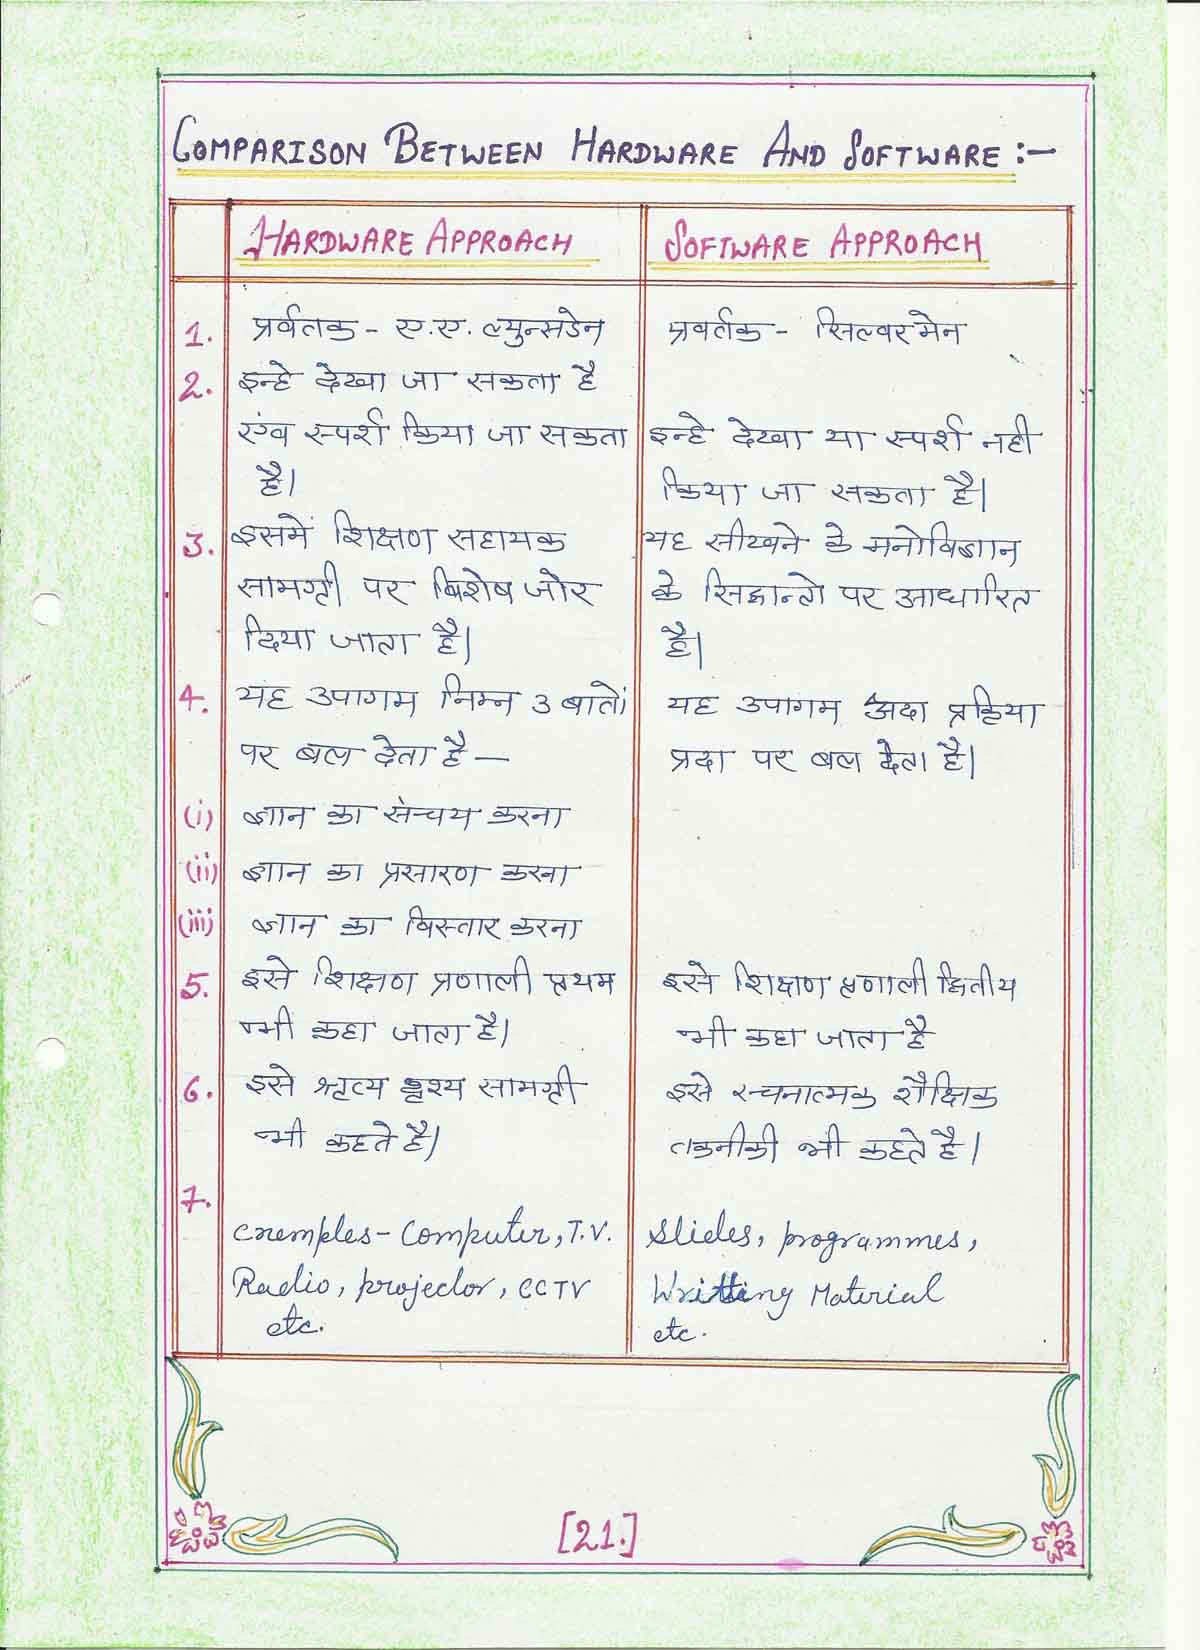 COMPARISON BETWEEN HARDWARE AND SOFTWARE :-
HARDWARE APPROACH
SOFTWARE APPROACH
1. प्रर्वतक - ए.ए. ल्युन्सडेन
प्रवर्तक - सिल्वर मेन
2. इन्हे देखा जा सकता है
एंव स्पर्श किया जा सकता
है।
इन्हे देखा या स्पर्श नही
किया जा सकता है।
3. इसमें शिक्षण सहायक
सामग्री पर विशेष जोर
दिया जाता है।
यह सीखने के मनोविज्ञान
के सिद्धान्तो पर आधारित
है।
4. यह उपागम निम्न 3 बातों
पर बल देता है —
यह उपागम अदा प्रक्रिया
प्रदा पर बल देता है।
(i) ज्ञान का संचय करना
(ii) ज्ञान का प्रसारण करना
(iii) ज्ञान का विस्तार करना
5. इसे शिक्षण प्रणाली प्रथम
भी कहा जाता है।
इसे शिक्षण प्रणाली द्वितीय
भी कहा जाता है
6. इसे दृश्य सामग्री
भी कहते है।
इसे रचनात्मक शैक्षिक
तकनीकी भी कहते है।
7.
exemples - Computer, T.V.
Radio, projector, CCTV
etc.
Slides, programmes,
Writting Material
etc.
[21.]